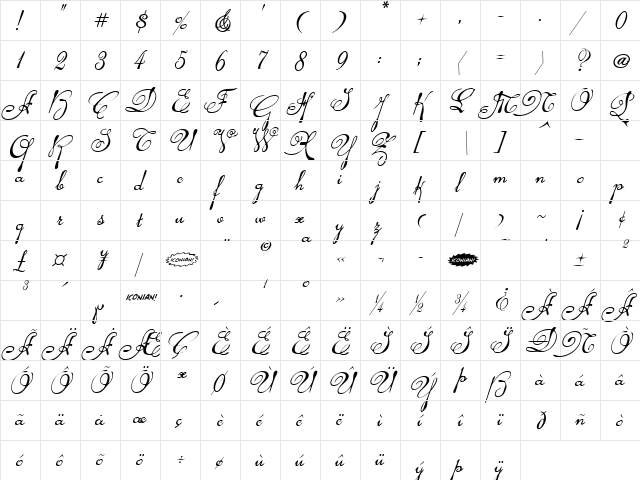 ! " # $ % & ' ( ) * + , - . / 0
1 2 3 4 5 6 7 8 9 : ; < = > ? @
A B C D E F G H I J K L M N O P
Q R S T U V W X Y Z [ \ ] ^ _
a b c d e f g h i j k l m n o p
q r s t u v w x y z { | } ~ ¡ ¢
£ ¤ ¥ ¦ ICONIAN! ¨ © ª « ¬ - ICONIAN! ¯ ± ²
³ ´ µ ICONIAN! · ¸ ¹ º » ¼ ½ ¾ ¿ À Á Â
Ã Ä Å Æ Ç È É Ê Ë Ì Í Î Ï Ð Ñ Ò
Ó Ô Õ Ö × Ø Ù Ú Û Ü Ý Þ ß à á â
ã ä å æ ç è é ê ë ì í î ï ð ñ ò
ó ô õ ö ÷ ø ù ú û ü ý þ ÿ